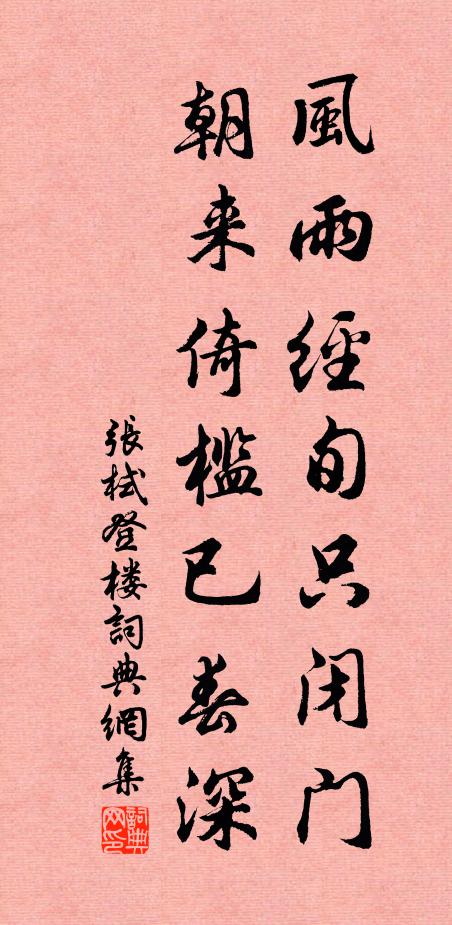 風雨經旬只闭门
朝来倚檻已春深
張栻登楼詞典網集
詞典网印